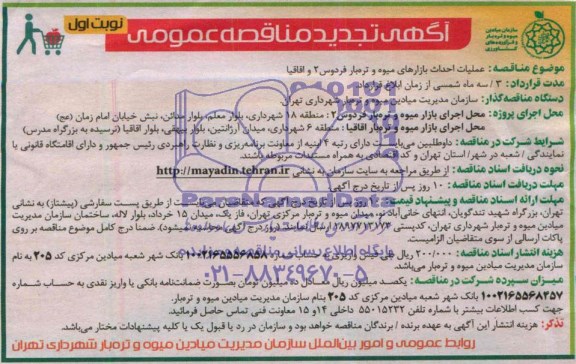 نوبت اول
آگهی تجدید مناقصه عمومی
سازمان میادین میوه و تره‌بار و فرآورده‌های کشاورزی
موضوع مناقصه: عملیات احداث بازارهای میوه و تره‌بار فردوس۲ و اقاقیا
مدت قرارداد: ۳ / سه ماه شمسی از زمان ابلاغ قرارداد
دستگاه مناقصه‌گذار: سازمان مدیریت میادین میوه و تره‌بار شهرداری تهران
محل اجرای پروژه: محل اجرای بازار میوه و تره‌بار فردوس۲: منطقه ۱۸ شهرداری، بلوار معلم، بلوار مدائن، نبش خیابان امام زمان (عج)
محل اجرای بازار میوه و تره‌بار اقاقیا: منطقه ۶ شهرداری، میدان آرژانتین، بلوار بیهقی، بلوار اقاقیا (نرسیده به بزرگراه مدرس)
شرایط شرکت در مناقصه: داوطلبین می‌بایست دارای رتبه ۴ ابنیه از معاونت برنامه‌ریزی و نظارت راهبردی رئیس جمهور و دارای اقامتگاه قانونی یا
نمایندگی / شعبه در شهر/ استان تهران و کد اقتصادی به همراه مستندات مربوطه باشند.
نحوه دریافت اسناد مناقصه: از طریق مراجعه به سایت سازمان به نشانی http://mayadin.tehran.ir
مهلت دریافت اسناد مناقصه: ۱۰ روز پس از تاریخ درج آگهی
مهلت ارائه اسناد مناقصه و پیشنهاد قیمت: روز پس از تاریخ درج آگهی که متقاضیان می‌بایست از طریق پست سفارشی (پیشتاز) به نشانی
تهران، بزرگراه شهید تندگویان، انتهای خانی‌آباد نو، میدان میوه و تره‌بار مرکزی تهران، فاز یک، میدان ۱۵ خرداد، بلوار لاله، ساختمان سازمان مدیریت
میادین میوه و تره‌بار شهرداری تهران، کدپستی ارسال نمایند. ضمنا درج کامل موضوع مناقصه بر روی
پاکات ارسالی از سوی متقاضیان الزامیست.
هزینه انتشار اسناد مناقصه: ۲۰۰/۰۰۰ ریال طی فیش واریزی به حساب ۱۰۰۲۱۶۵۵۵۶۸۵۸ بانک شهر شعبه میادین مرکزی کد ۲۰۵ به نام
سازمان مدیریت میادین میوه و تره‌بار می‌باشد.
میزان سپرده شرکت در مناقصه: یکصد میلیون ریال معادل ده میلیون تومان بصورت ضمانتنامه بانکی یا واریز نقدی به حساب شماره
۱۰۰۲۱۶۵۵۶۸۲۵۷ بانک شهر شعبه میادین مرکزی کد ۲۰۵ بنام سازمان مدیریت میادین میوه و تره‌بار.
جهت کسب اطلاعات بیشتر با شماره تلفن ۵۵۰۱۵۲۳۲ داخلی ۱۴ و ۱۵ معاونت فنی تماس حاصل فرمائید.
تذکر: هزینه انتشار این آگهی به عهده برنده / برندگان مناقصه خواهد بود و سازمان در رد یا قبول یک یا کلیه پیشنهادات مختار می‌باشد.
روابط عمومی و امور بین‌الملل سازمان مدیریت میادین میوه و تره‌بار شهرداری تهران
پایگاه اطلاع رسانی مناقصه و مزایده
۰۲۱-۸۸۳۴۹۶۷۰-۵